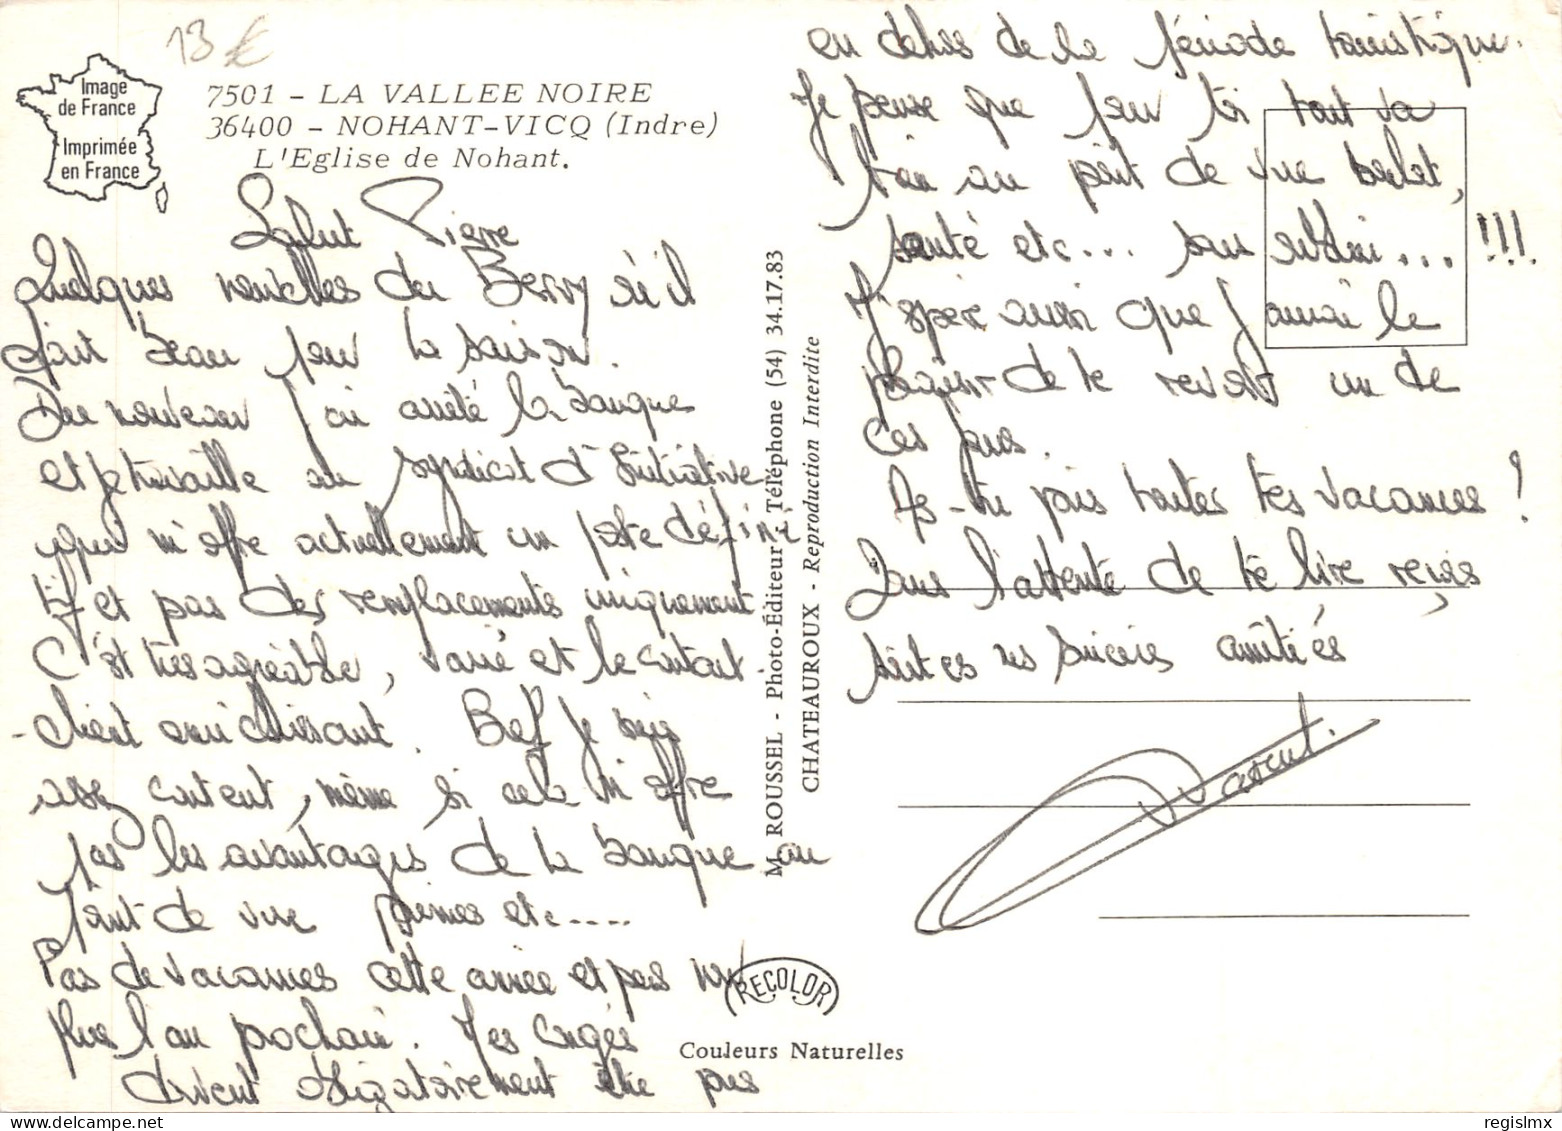 13 €
Image
de France
Imprimée
en France
7501 - LA VALLEE NOIRE
36400 - NOHANT-VICQ (Indre)
L'Eglise de Nohant.
Salut Pierre
Quelques nouvelles du Berry où il
fait beau pour la saison.
Du nouveau j'ai arrêté la banque
et je travaille au syndicat d'Initiative
qui m'offre actuellement un poste défini
tif et pas des remplacements uniquement
C'est très agréable, varié et le contact
-client enrichissant. Bref je suis
assez content, même si cela m'offre
pas les avantages de la banque au
point de vue primes etc....
Pas de vacances cette année et pas non
plus l'an prochain. Mes congés
doivent obligatoirement être pris
M. ROUSSEL - Photo-Éditeur - Téléphone (54) 34.17.83
CHATEAUROUX - Reproduction Interdite
RECOLOR
Couleurs Naturelles
en dehors de la période touristique.
Je pense que pour toi tout va
bien au point de vue boulot,
santé etc... sans oublier... !!!!
J'espère aussi que j'aurai le
plaisir de te revoir un de
ces jours.
As-tu pris toutes tes vacances !
Dans l'attente de te lire reçois
toutes mes sincères amitiés
Vincent.
regislmx